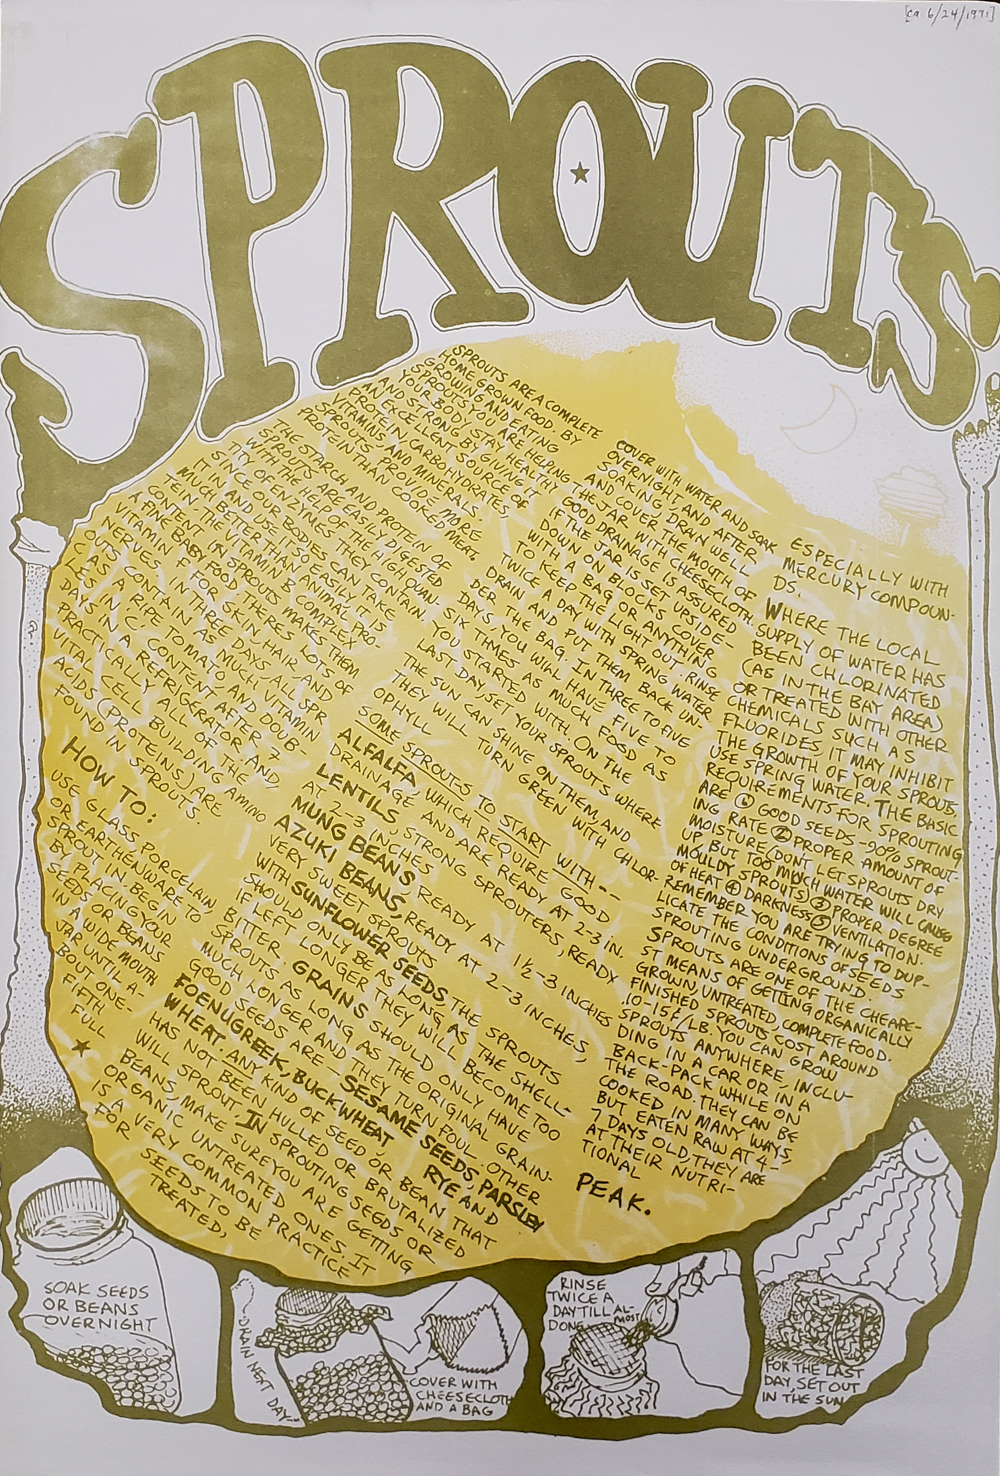 [ca 6/24/1971]
SPROUTS
SPROUTS ARE A COMPLETE
HOME GROWN FOOD. BY
GROWING AND EATING
SPROUTS YOU ARE HELPING
YOUR BODY STAY HEALTHY
AND STRONG BY GIVING IT
AN EXCELLENT SOURCE OF
PROTEIN, CARBOHYDRATES
VITAMINS, AND MINERALS.
SPROUTS PROVIDE MORE
PROTEIN THAN COOKED MEAT.
THE STARCH AND PROTEIN OF
SPROUTS ARE EASILY DIGESTED
WITH THE HELP OF THE HIGH QUAN-
TITY OF ENZYMES THEY CONTAIN
SINCE OUR BODIES CAN TAKE
IT IN AND USE IT SO EASILY, IT IS
MUCH BETTER THAN ANIMAL PRO-
TEIN. THE VITAMIN B COMPLEX
CONTENT IN SPROUTS MAKES THEM
A FINE BABY FOOD. THERES LOTS OF
VITAMIN E FOR SKIN, HAIR AND
NERVES. IN THREE DAYS ALL SPR-
OUTS CONTAIN AS MUCH VITAMIN
C AS A RIPE TOMATO AND DOUB-
IN C CONTENT AFTER 7
DAYS IN A REFRIGERATOR. AND,
PRACTICALLY ALL OF THE
VITAL CELL BUILDING AMINO
ACIDS (PROTEINS) ARE
FOUND IN SPROUTS.
HOW TO:
USE GLASS, PORCELAIN,
OR EARTHENWARE TO
SPROUT IN. BEGIN
BY PLACING YOUR
SEEDS OR BEANS
IN A WIDE MOUTH
JAR UNTIL A-
BOUT ONE-
FIFTH
FULL
COVER WITH WATER AND SOAK
OVERNIGHT, AND AFTER
SOAKING DRAIN WELL
AND COVER THE MOUTH OF
THE JAR WITH CHEESECLOTH.
GOOD DRAINAGE IS ASSURED
IF THE JAR IS SET UPSIDE-
DOWN ON BLOCKS. COVER
WITH A BAG OR ANYTHING
TO KEEP THE LIGHT OUT. RINSE
TWICE A DAY WITH SPRING WATER
DRAIN AND PUT THEM BACK UN-
DER THE BAG. IN THREE TO FIVE
DAYS YOU WILL HAVE FIVE TO
SIX TIMES AS MUCH FOOD AS
YOU STARTED WITH. ON THE
LAST DAY, SET YOUR SPROUTS WHERE
THE SUN CAN SHINE ON THEM, AND
THEY WILL TURN GREEN WITH CHLOR-
OPHYLL.
SOME SPROUTS TO START WITH-
ALFALFA WHICH REQUIRE GOOD
DRAINAGE AND ARE READY AT 2-3 IN.
LENTILS, STRONG SPROUTERS, READY
AT 2-3 INCHES
MUNG BEANS READY AT 1½-3 INCHES
AZUKI BEANS, READY AT 2-3 INCHES,
VERY SWEET SPROUTS
WITH SUNFLOWER SEEDS, THE SPROUTS
SHOULD ONLY BE AS LONG AS THE SHELL-
IF LEFT LONGER THEY WILL BECOME TOO
BITTER. GRAINS SHOULD ONLY HAVE
SPROUTS AS LONG AS THE ORIGINAL GRAIN-
MUCH LONGER AND THEY TURN FOUL. OTHER
GOOD SEEDS ARE SESAME SEEDS, PARSLEY
FOENUGREEK, BUCKWHEAT, RYE AND
WHEAT. ANY KIND OF SEED OR BEAN THAT
HAS NOT BEEN HULLED OR BRUTALIZED
WILL SPROUT. IN SPROUTING SEEDS OR
BEANS, MAKE SURE YOU ARE GETTING
ORGANIC UNTREATED ONES. IT
IS A VERY COMMON PRACTICE
FOR SEEDS TO BE
TREATED,
ESPECIALLY WITH
MERCURY COMPOUN-
DS.
WHERE THE LOCAL
SUPPLY OF WATER HAS
BEEN CHLORINATED
(AS IN THE BAY AREA)
OR TREATED WITH OTHER
CHEMICALS SUCH AS
FLUORIDES, IT MAY INHIBIT
THE GROWTH OF YOUR SPROUTS,
USE SPRING WATER. THE BASIC
REQUIREMENTS FOR SPROUTING
ARE ① GOOD SEEDS-90% SPROUT-
ING RATE ② PROPER AMOUNT OF
MOISTURE (DONT LET SPROUTS DRY
UP, BUT TOO MUCH WATER WILL CAUSE
MOULDY SPROUTS) ③ PROPER DEGREE
OF HEAT ④ DARKNESS ⑤ VENTILATION.
REMEMBER YOU ARE TRYING TO DUP-
LICATE THE CONDITIONS OF SEEDS
SPROUTING UNDERGROUND.
SPROUTS ARE ONE OF THE CHEAPE-
ST MEANS OF GETTING ORGANICALLY
GROWN, UNTREATED, COMPLETE FOOD.
FINISHED SPROUTS COST AROUND
10-15¢/LB. YOU CAN GROW
SPROUTS ANYWHERE, INCLU-
DING IN A CAR OR IN A
BACK-PACK WHILE ON
THE ROAD. THEY CAN BE
COOKED IN MANY WAYS
BUT EATEN RAW AT 4-
7 DAYS OLD, THEY ARE
AT THEIR NUTRI-
TIONAL
PEAK.
SOAK SEEDS
OR BEANS
OVERNIGHT
DRAIN NEXT DAY...
COVER WITH
CHEESECLOTH
AND A BAG
RINSE
TWICE A
DAY TILL AL-
MOST
DONE
FOR THE LAST
DAY, SET OUT
IN THE SUN